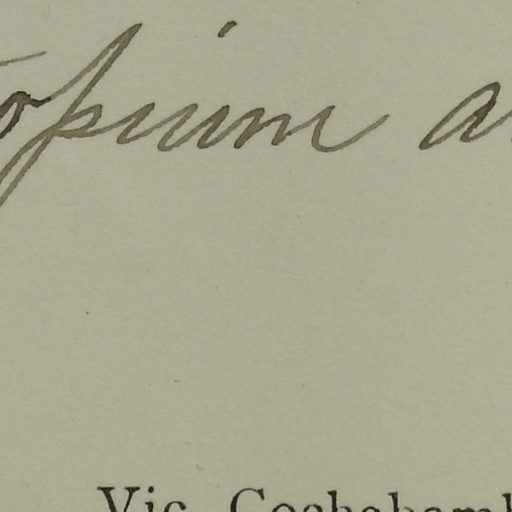 opium a
Vic. Cochabamb